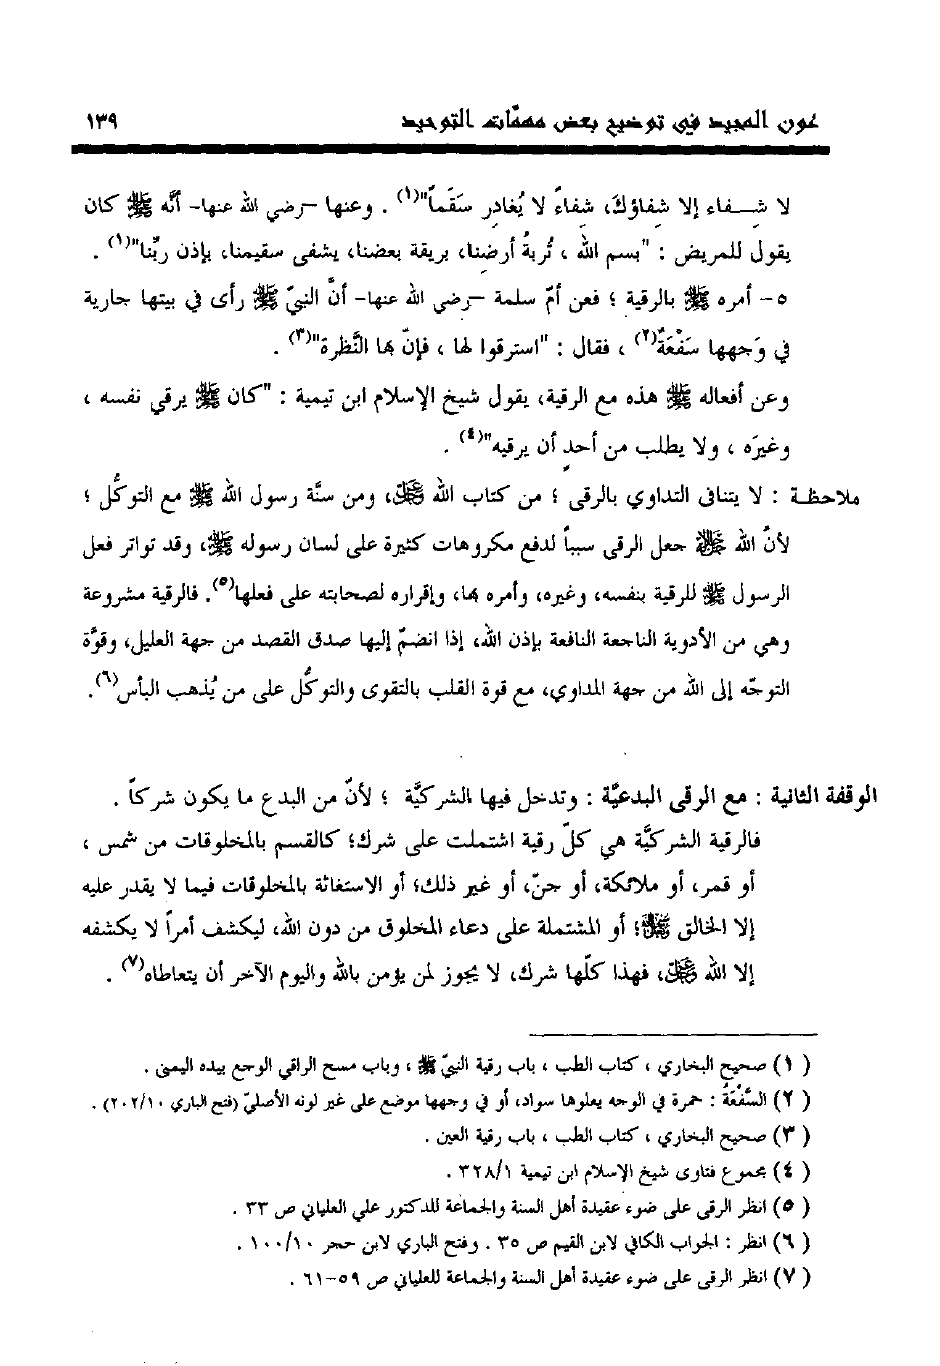 عون المجيد في توضيح بعض مهمّات التوحيد ١٣٩
لا شــفاء إلا شفاؤكَ، شفاءً لا يُغادِر سَقَماً"(١) . وعنها –رضي الله عنها– أنَّه ﷺ كان
يقول للمريض : "بسم الله ، تُربةُ أرضِنا، بريقة بعضنا، يشفى سقيمنا، بإذن ربِّنا"(١) .
٥– أمره ﷺ بالرقية ؛ فعن أمّ سلمة –رضي الله عنها– أنَّ النبيّ ﷺ رأى في بيتها جارية
في وَجهها سَفْعَةٌ(٢) ، فقال : "استرقوا لها ، فإنّ بها النَّظرة"(٣) .
وعن أفعاله ﷺ هذه مع الرقية، يقول شيخ الإسلام ابن تيمية : "كان ﷺ يرقي نفسه ،
وغيرَه ، ولا يطلب من أحدٍ أن يرقيه"(٤) .
ملاحظـة : لا يتنافى التداوي بالرقى ؛ من كتاب الله ﷻ، ومن سنَّة رسول الله ﷺ مع التوكُّل ؛
لأنّ الله ﷻ جعل الرقى سبباً لدفع مكروهات كثيرة على لسان رسوله ﷺ، وقد تواتر فعل
الرسول ﷺ للرقية بنفسه، وغيره، وأمره بها، وإقراره لصحابته على فعلها(٥). فالرقية مشروعة
وهي من الأدوية الناجعة النافعة بإذن الله، إذا انضمّ إليها صدق القصد من جهة العليل، وقوَّة
التوجّه إلى الله من جهة المداوي، مع قوة القلب بالتقوى والتوكُّل على من يُذهب البأس(٦).
الوقفة الثانية : مع الرقى البدعيَّة : وتدخل فيها الشركيَّة ؛ لأنّ من البدع ما يكون شركاً .
فالرقية الشركيَّة هي كلّ رقية اشتملت على شرك؛ كالقسم بالمخلوقات من شمس ،
أو قمر، أو ملائكة، أو جنّ، أو غير ذلك؛ أو الاستغاثة بالمخلوقات فيما لا يقدر عليه
إلا الخالق ﷻ؛ أو المشتملة على دعاء المخلوق من دون الله، ليكشف أمراً لا يكشفه
إلا الله ﷻ، فهذا كلّها شرك، لا يجوز لمن يؤمن بالله واليوم الآخر أن يتعاطاه(٧) .
( ١) صحيح البخاري ، كتاب الطب ، باب رقية النبيّ ﷺ ، وباب مسح الراقي الوجع بيده اليمنى .
( ٢) السَّفْعَةُ : حمرة في الوجه يعلوها سواد، أو في وجهها موضع على غير لونه الأصليّ (فتح الباري ٢٠٢/١٠) .
( ٣) صحيح البخاري ، كتاب الطب ، باب رقية العين .
( ٤) مجموع فتاوى شيخ الإسلام ابن تيمية ٣٢٨/١ .
( ٥) انظر الرقى على ضوء عقيدة أهل السنة والجماعة للدكتور علي العلياني ص ٣٣ .
( ٦) انظر : الجواب الكافي لابن القيم ص ٣٥ . وفتح الباري لابن حجر ١٠٠/١٠ .
( ٧) انظر الرقى على ضوء عقيدة أهل السنة والجماعة للعلياني ص ٥٩–٦١ .